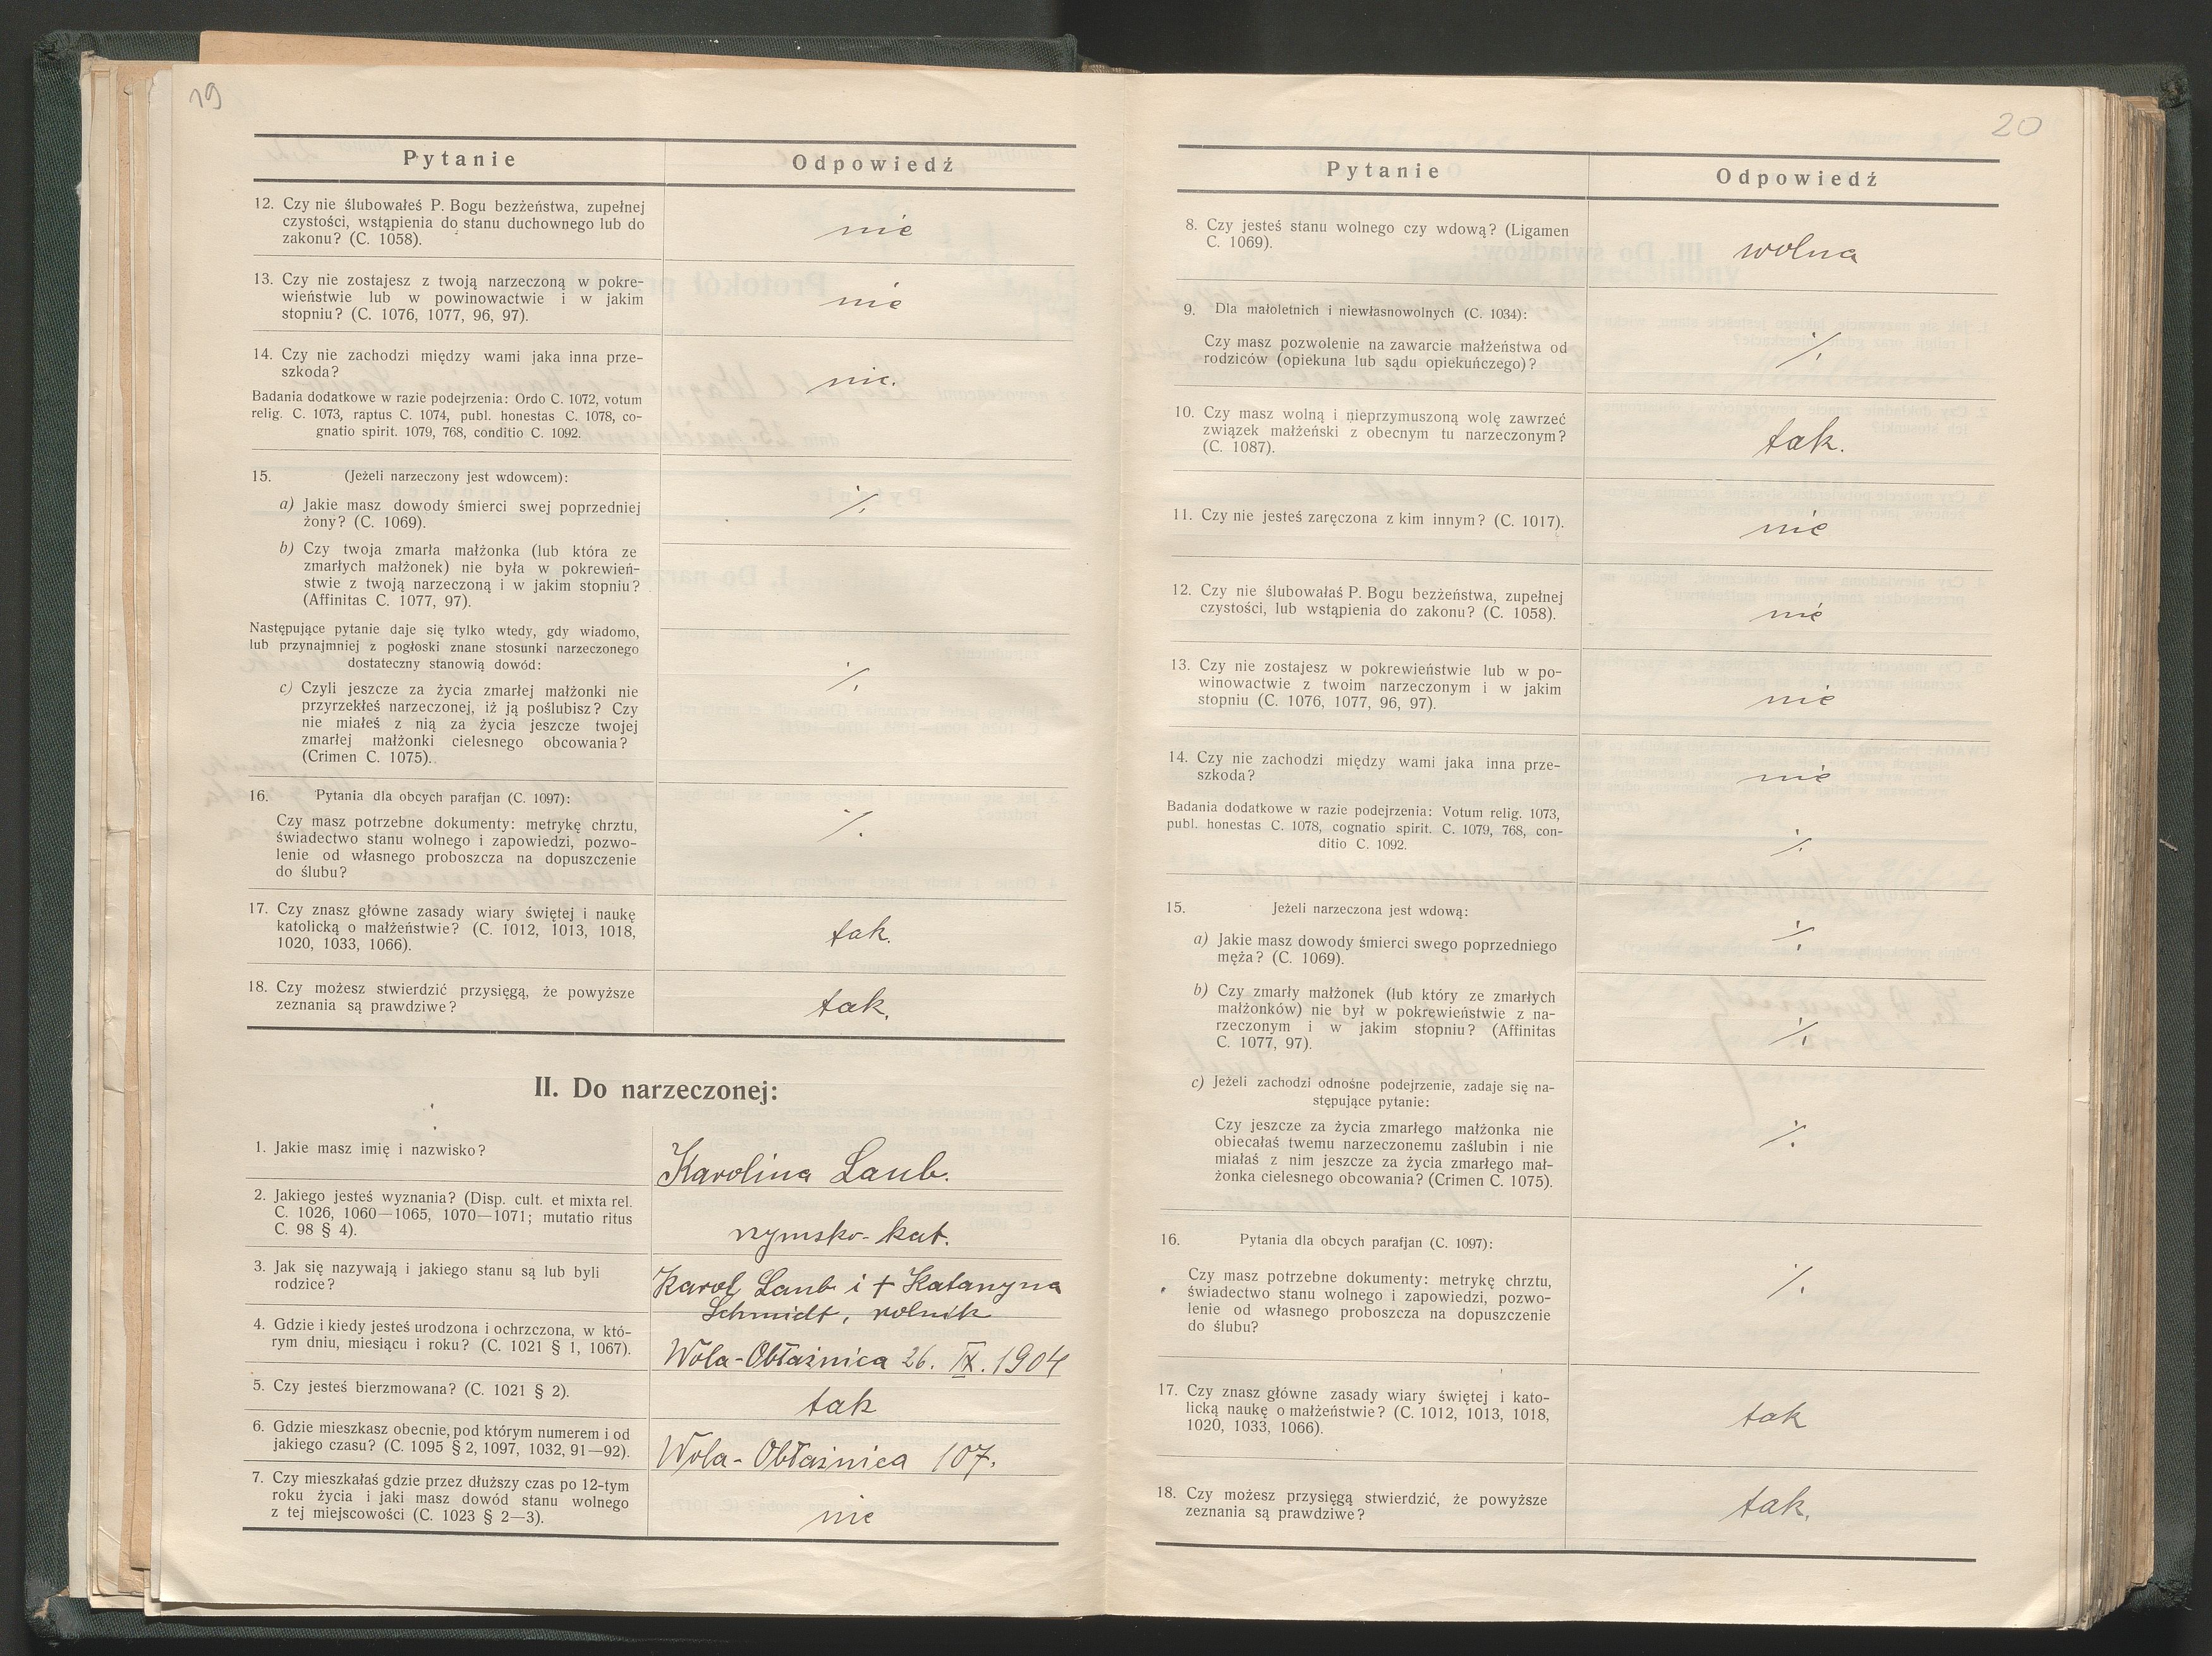 19
Pytanie
Odpowiedź
12. Czy nie ślubowałeś P. Bogu bezżeństwa, zupełnej
czystości, wstąpienia do stanu duchownego lub do
zakonu? (C. 1058).
nie
13. Czy nie zostajesz z twoją narzeczoną w pokre-
wieństwie lub w powinowactwie i w jakim
stopniu? (C. 1076, 1077, 96, 97).
nie
14. Czy nie zachodzi między wami jaka inna prze-
szkoda?
nie.
Badania dodatkowe w razie podejrzenia: Ordo C. 1072, votum
relig. C. 1073, raptus C. 1074, publ. honestas C. 1078, co-
gnatio spirit. 1079, 768, conditio C. 1092.
15. (Jeżeli narzeczony jest wdowcem):
a) Jakie masz dowody śmierci swej poprzedniej
żony? (C. 1069).
./.
b) Czy twoja zmarła małżonka (lub która ze
zmarłych małżonek) nie była w pokrewień-
stwie z twoją narzeczoną i w jakim stopniu?
(Affinitas C. 1077, 97).
Następujące pytanie daje się tylko wtedy, gdy wiadomo,
lub przynajmniej z pogłoski znane stosunki narzeczonego
dostateczny stanowią dowód:
c) Czyli jeszcze za życia zmarłej małżonki nie
przyrzekłeś narzeczonej, iż ją poślubisz? Czy
nie miałeś z nią za życia jeszcze twojej
zmarłej małżonki cielesnego obcowania?
(Crimen C. 1075).
./.
16. Pytania dla obcych parafjan (C. 1097):
Czy masz potrzebne dokumenty: metrykę chrztu,
świadectwo stanu wolnego i zapowiedzi, pozwo-
lenie od własnego proboszcza na dopuszczenie
do ślubu?
./.
17. Czy znasz główne zasady wiary świętej i naukę
katolicką o małżeństwie? (C. 1012, 1013, 1018,
1020, 1033, 1066).
tak.
18. Czy możesz stwierdzić przysięgą, że powyższe
zeznania są prawdziwe?
tak.
II. Do narzeczonej:
1. Jakie masz imię i nazwisko?
Karolina Laub.
2. Jakiego jesteś wyznania? (Disp. cult. et mixta rel.
C. 1026, 1060—1065, 1070—1071; mutatio ritus
C. 98 § 4).
rzymsko-kat.
3. Jak się nazywają i jakiego stanu są lub byli
rodzice?
Karol Laub i + Katarzyna
Schmidt, rolnik
4. Gdzie i kiedy jesteś urodzona i ochrzczona, w któ-
rym dniu, miesiącu i roku? (C. 1021 § 1, 1067).
Wola-Obłaźnica 26. IX. 1904
5. Czy jesteś bierzmowana? (C. 1021 § 2).
tak
6. Gdzie mieszkasz obecnie, pod którym numerem i od
jakiego czasu? (C. 1095 § 2, 1097, 1032, 91—92).
Wola-Obłaźnica 107.
7. Czy mieszkałaś gdzie przez dłuższy czas po 12-tym
roku życia i jaki masz dowód stanu wolnego
z tej miejscowości (C. 1023 § 2—3).
nie
20
Pytanie
Odpowiedź
8. Czy jesteś stanu wolnego czy wdową? (Ligamen
C. 1069).
wolna
9. Dla małoletnich i niewłasnowolnych (C. 1034):
Czy masz pozwolenie na zawarcie małżeństwa od
rodziców (opiekuna lub sądu opiekuńczego)?
./.
10. Czy masz wolną i nieprzymuszoną wolę zawrzeć
związek małżeński z obecnym tu narzeczonym?
(C. 1087).
tak.
11. Czy nie jesteś zaręczona z kim innym? (C. 1017).
nie
12. Czy nie ślubowałaś P. Bogu bezżeństwa, zupełnej
czystości, lub wstąpienia do zakonu? (C. 1058).
nie
13. Czy nie zostajesz w pokrewieństwie lub w po-
winowactwie z twoim narzeczonym i w jakim
stopniu (C. 1076, 1077, 96, 97).
nie
14. Czy nie zachodzi między wami jaka inna prze-
szkoda?
nie
Badania dodatkowe w razie podejrzenia: Votum relig. 1073,
publ. honestas C. 1078, cognatio spirit. C. 1079, 768, con-
ditio C. 1092.
./.
15. Jeżeli narzeczona jest wdową:
a) Jakie masz dowody śmierci swego poprzedniego
męża? (C. 1069).
./.
b) Czy zmarły małżonek (lub który ze zmarłych
małżonków) nie był w pokrewieństwie z na-
rzeczonym i w jakim stopniu? (Affinitas
C. 1077, 97).
./.
c) Jeżeli zachodzi odnośne podejrzenie, zadaje się na-
stępujące pytanie:
Czy jeszcze za życia zmarłego małżonka nie
obiecałaś twemu narzeczonemu zaślubin i nie
miałaś z nim jeszcze za życia zmarłego mał-
żonka cielesnego obcowania? (Crimen C. 1075).
./.
16. Pytania dla obcych parafjan (C. 1097):
Czy masz potrzebne dokumenty: metrykę chrztu,
świadectwo stanu wolnego i zapowiedzi, pozwo-
lenie od własnego proboszcza na dopuszczenie
do ślubu?
./.
17. Czy znasz główne zasady wiary świętej i kato-
licką naukę o małżeństwie? (C. 1012, 1013, 1018,
1020, 1033, 1066).
tak
18. Czy możesz przysięgą stwierdzić, że powyższe
zeznania są prawdziwe?
tak.